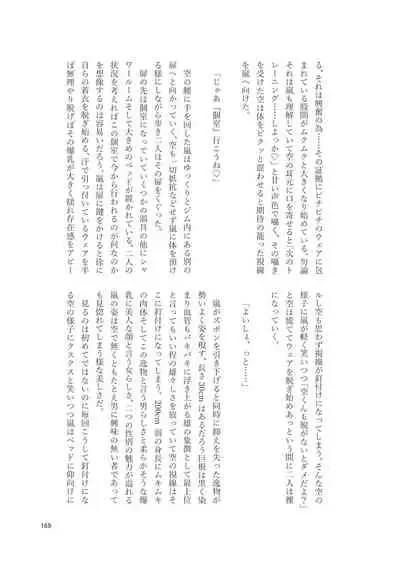 る。それは興奮の為……その証拠にピチピチのウェアに包
まれている股間がムクムクと大きくなり始めている。勿論
それは嵐も理解していて空の耳元に口を寄せると「次のト
レーニング……しよっか♡」と甘い声色で囁く。その囁き
を受けた空は体をビクッと震わせると期待の籠った視線
を嵐へ向けた。
「じゃあ『個室』行こうね♡」
空の腰に手を回した嵐はゆっくりとジム内にある別の
扉へと向かっていく。空も一切抵抗などせず嵐に体を預け
る様にしながら歩き二人はその扉をくぐった。
扉の先は個室になっていていくつかの器具の他にシャ
ワールームそして大きめのベッドが置かれている。二人の
状況を考えればこの個室で今から行われるのが何なのか
を想像するのは容易いだろう。嵐は扉に鍵をかけると徐に
自らの着衣を脱ぎ始める。汗で引っ付いているウェアを半
ば無理やり脱げばその爆乳が大きく揺れ存在感をアピー
ルし空も思わず視線が釘付けになってしまう。そんな空の
様子に嵐が軽く笑いつつ「空くんも脱がないとダメだよ？」
と空は慌ててウェアを脱ぎ始めあっという間に二人は裸
になっていく。
「よいしょ、っと……」
嵐がズボンを引き下げると同時に抑えを失った逸物が
勢いよく姿を現す。長さ30cmはあるだろう巨根は黒く染
まり血管もバキバキに浮き上がる雄の象徴として最上
と言ってもいい程の雄々しさを放っていて空の視線はそ
こに釘付けになってしまう。200cm前の身長にムキムキ
の肉体そしてこの逸物と言う男らしさと柔らかそうな爆
乳に美人な顔と言う女らしさ、二つの性別の魅力が溢れる
嵐の姿は空で無くともたとえ男に興味の無い者であって
も見惚れてしまう様な美しさだ。
見るのは初めてではないのに毎回こうして釘付けにな
る空の様子にクスクスと笑いつつ嵐はベッドに仰向けに
169